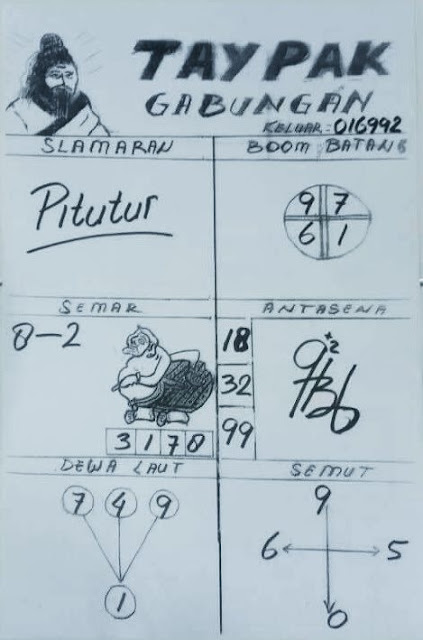 TAYPAK
GABUNGAN
KELUAR: 016992
SLAMARAN
BOOM BATANG
Pitutur
9 7
6 1
SEMAR
ANTASENA
0-2
18
32
99
3 1 7 8
DEWA LAUT
SEMUT
7 4 9
1
9
6 5
0